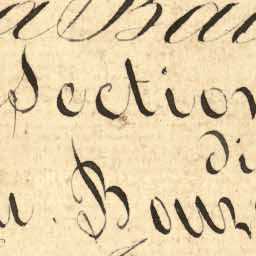 a Ba
Section
di
u. Bour